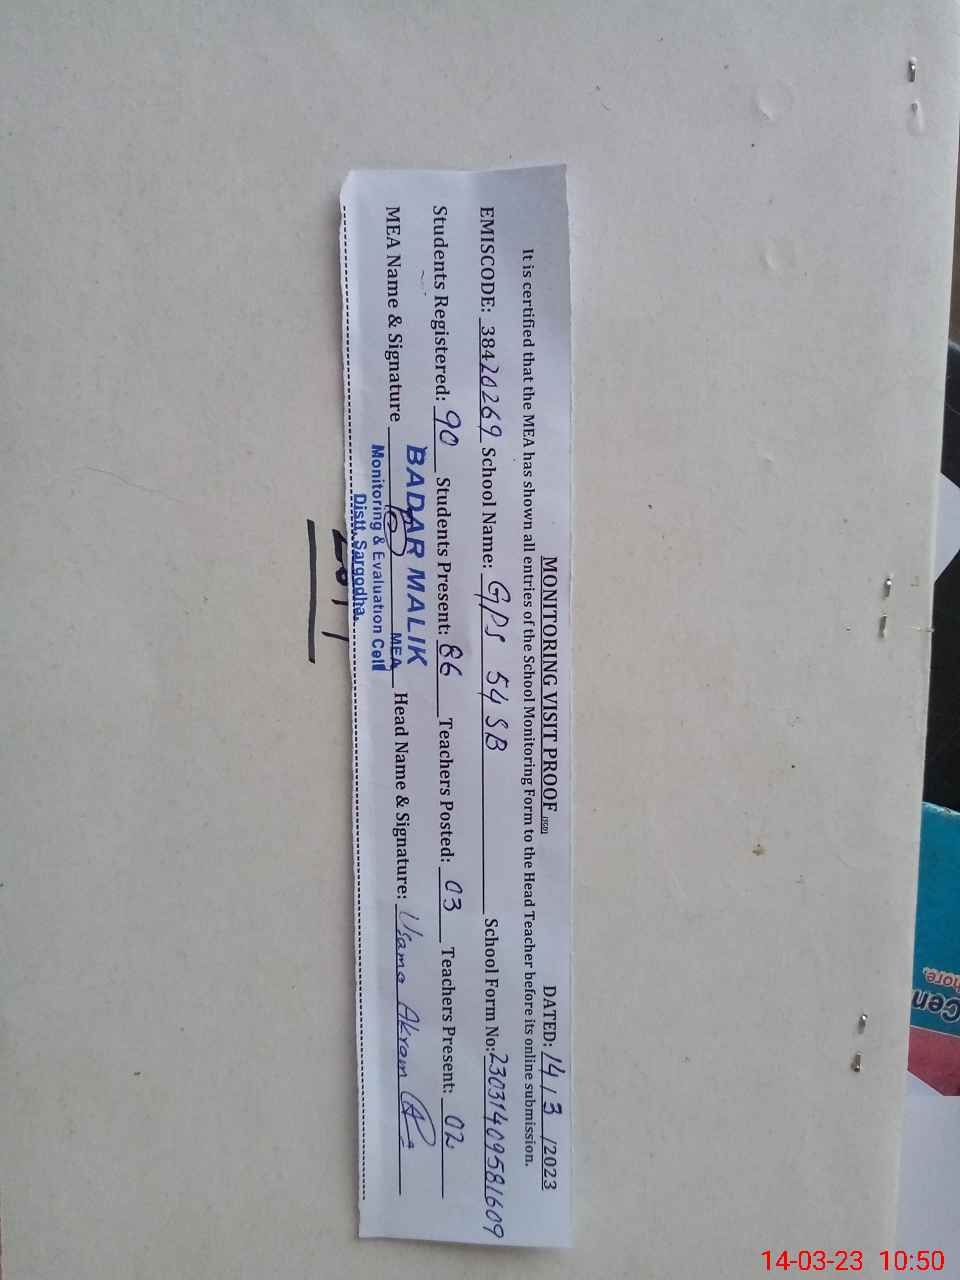 MONITORING VISIT PROOF (SGD) DATED: 14/3/2023
It is certified that the MEA has shown all entries of the School Monitoring Form to the Head Teacher before its online submission.
EMISCODE: 38420269 School Name: GPS 54 SB School Form No: 23031409581609
Students Registered: 90 Students Present: 86 Teachers Posted: 03 Teachers Present: 02
MEA Name & Signature Head Name & Signature: Usama Akram
BADAR MALIK
MEA
Monitoring & Evaluation Cell
Distt. Sargodha.
Cen
hore.
14-03-23 10:50